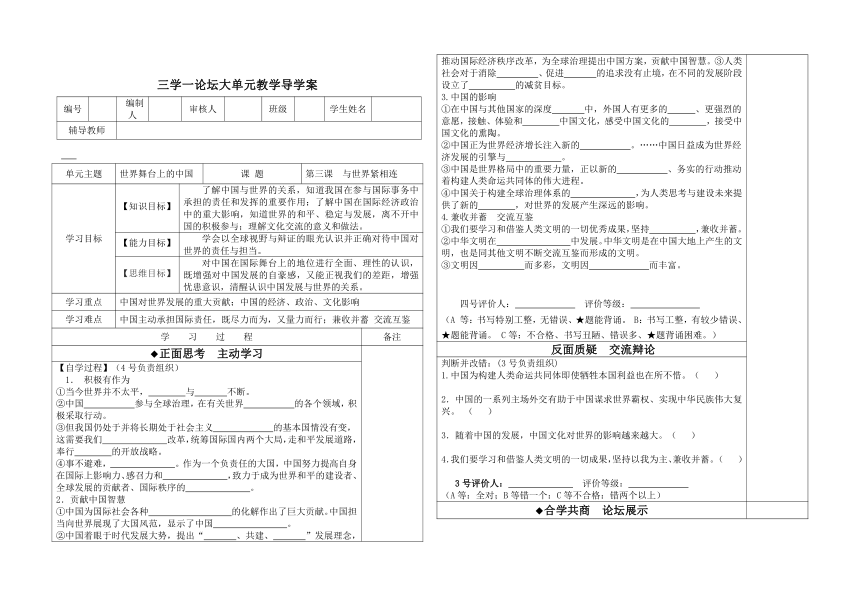 三学一论坛大单元教学导学案
编号 编制人 审核人 班级 学生姓名
辅导教师
单元主题 世界舞台上的中国 课 题 第三课 与世界紧相连
学习目标
【知识目标】
了解中国与世界的关系，知道我国在参与国际事务中
承担的责任和发挥的重要作用；了解中国在国际经济政治
中的重大影响，知道世界的和平、稳定与发展，离不开中
国的积极参与；理解文化交流的意义和做法。
【能力目标】
学会以全球视野与辩证的眼光认识并正确对待中国对
世界的责任与担当。
【思维目标】
对中国在国际舞台上的地位进行全面、理性的认识，
既增强对中国发展的自豪感，又能正视我们的差距，增强
忧患意识，清醒认识中国发展与世界的关系。
学习重点 中国对世界发展的重大贡献；中国的经济、政治、文化影响
学习难点 中国主动承担国际责任，既尽力而为，又量力而行；兼收并蓄 交流互鉴
学 习 过 程 备注
◆正面思考 主动学习
【自学过程】（4 号负责组织）
1. 积极有作为
①当今世界并不太平，________与_______不断。
②中国___________参与全球治理，在有关世界___________的各个领域，积
极采取行动。
③但我国仍处于并将长期处于社会主义_____________的基本国情没有变，
这需要我们_____________改革，统筹国际国内两个大局，走和平发展道路，
奉行________的开放战略。
④事不避难，______________。作为一个负责任的大国，中国努力提高自身
在国际上影响力、感召力和______________，致力于成为世界和平的建设者、
全球发展的贡献者、国际秩序的______________。
2. 贡献中国智慧
①中国为国际社会各种__________________的化解作出了巨大贡献。中国担
当向世界展现了大国风范，显示了中国________________。
②中国着眼于时代发展大势，提出“_______、共建、_______”发展理念，
推动国际经济秩序改革，为全球治理提出中国方案，贡献中国智慧。③人类
社会对于消除_________、促进_______的追求没有止境，在不同的发展阶段
设立了__________的减贫目标。
3. 中国的影响
①在中国与其他国家的深度_______中，外国人有更多的______、更强烈的
意愿，接触、体验和________中国文化，感受中国文化的________，接受中
国文化的熏陶。
②中国正为世界经济增长注入新的___________。……中国日益成为世界经
济发展的引擎与____________。
③中国是世界格局中的重要力量，正以新的___________、务实的行动推动
着构建人类命运共同体的伟大进程。
④中国关于构建全球治理体系的______________，为人类思考与建设未来提
供了新的________，对世界的发展产生深远的影响。
4. 兼收并蓄 交流互鉴
①我们要学习和借鉴人类文明的一切优秀成果，坚持__________，兼收并蓄。
②中华文明在________________中发展。中华文明是在中国大地上产生的文
明，也是同其他文明不断交流互鉴而形成的文明。
③文明因__________而多彩，文明因_____________而丰富。
四号评价人：_____________ 评价等级：_______________
（A 等：书写特别工整，无错误、★题能背诵。 B：书写工整，有较少错误、
★题能背诵。 C 等：不合格、书写丑陋、错误多、★题背诵困难。）
反面质疑 交流辩论
判断并改错：（3 号负责组织）
1. 中国为构建人类命运共同体即使牺牲本国利益也在所不惜。（ ）
2. 中国的一系列主场外交有助于中国谋求世界霸权、实现中华民族伟大复
兴。 （ ）
3. 随着中国的发展，中国文化对世界的影响越来越大。（ ）
4. 我们要学习和借鉴人类文明的一切成果，坚持以我为主、兼收并蓄。（ ）
3 号评价人：______________ 评价等级：_____________
（A 等；全对；B 等错一个；C 等不合格；错两个以上）
◆合学共商 论坛展示